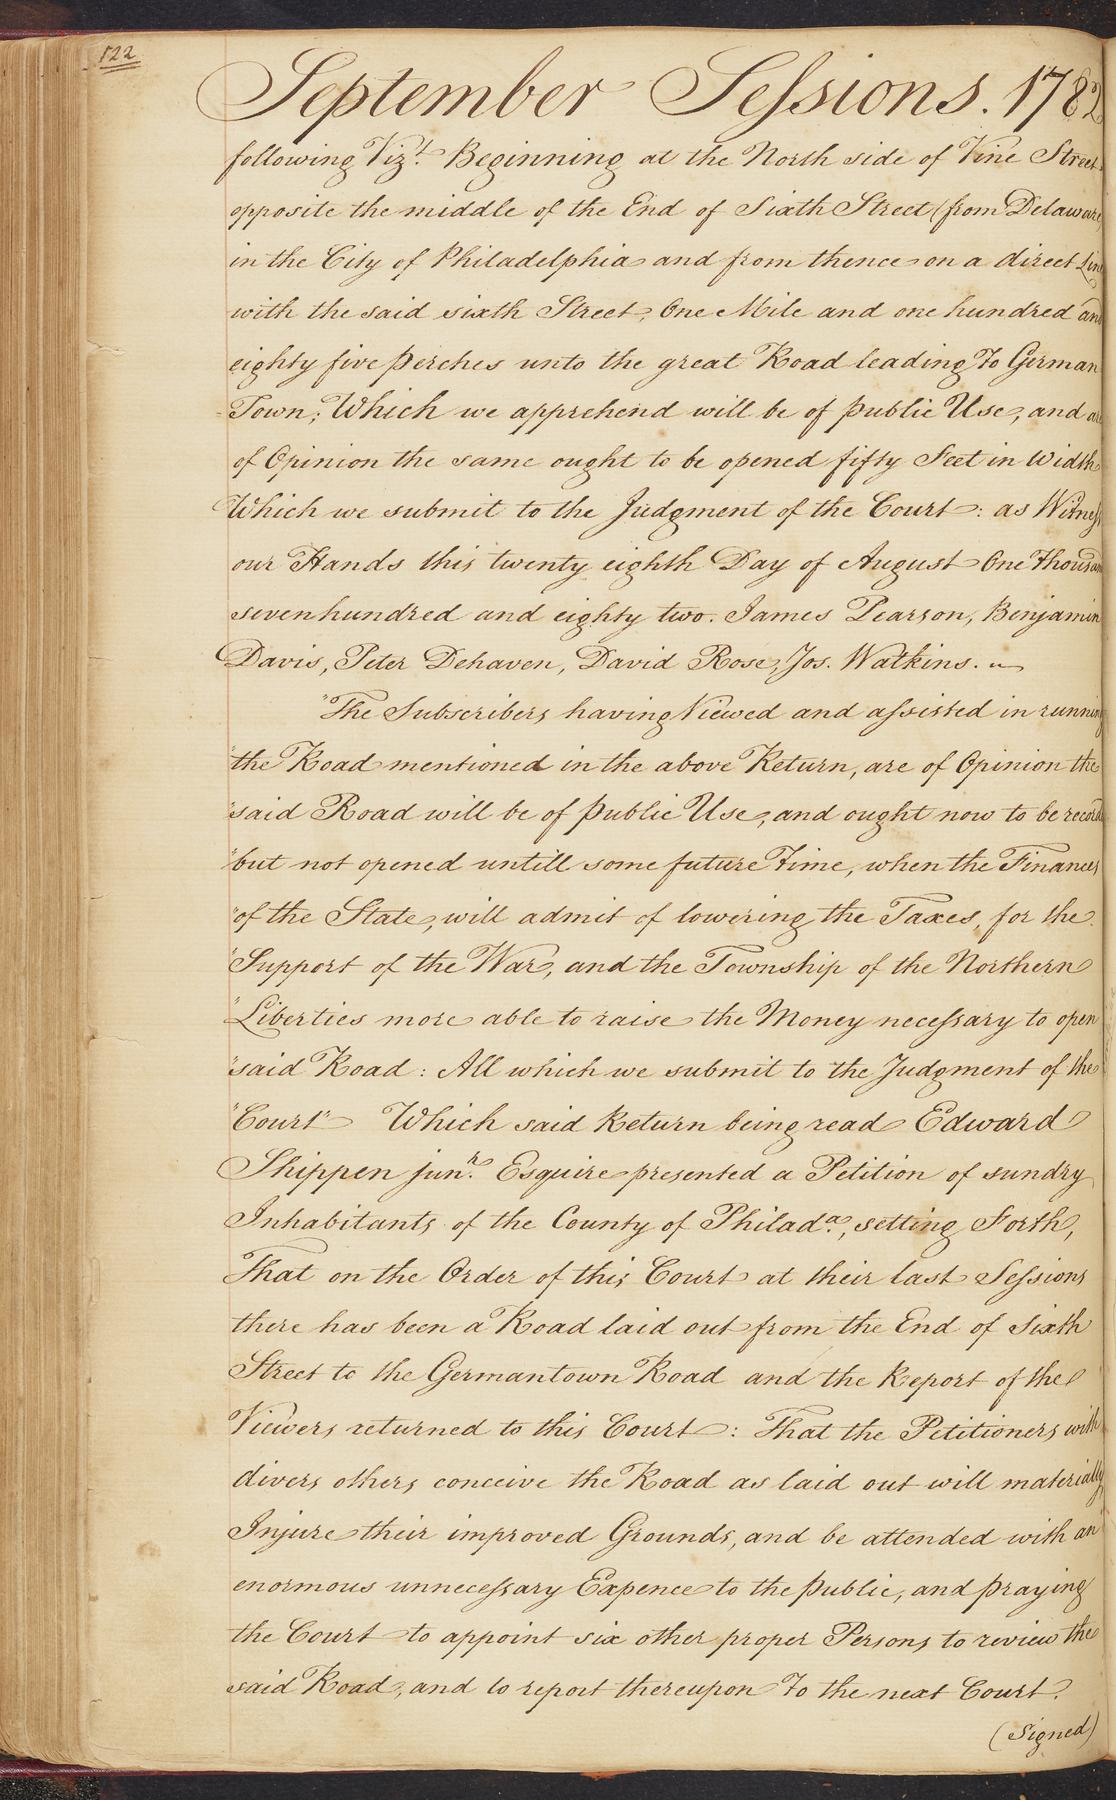 122
September Sessions. 1782
following Vizt. Beginning at the North side of Vine Street
opposite the middle of the End of Sixth Street (from Delaware)
in the City of Philadelphia and from thence on a direct Line
with the said sixth Street, One Mile and one hundred and
eighty five perches unto the great Road leading To German
Town; Which we apprehend will be of public Use, and are
of Opinion the same ought to be opened fifty Feet in Width
Which we submit to the Judgment of the Court: as Witness
our Hands this twenty eighth Day of August One Thousand
sevenhundred and eighty two. James Pearson, Benjamin
Davis, Peter Dehaven, David Rose, Jos. Watkins.
"The Subscribers having Viewed and assisted in running
"the Road mentioned in the above Return, are of Opinion the
"said Road will be of public Use, and ought now to be recorded
"but not opened untill some future Time, when the Finances
"of the State, will admit of lowering the Taxes, for the
"Support of the War, and the Township of the Northern
"Liberties more able to raise the Money necessary to open
"said Road: All which we submit to the Judgment of the
"Court" Which said Return being read Edward
Shippen junr. Esquire presented a Petition of sundry
Inhabitants of the County of Philada., setting Forth,
That on the Order of this Court at their last Sessions
there has been a Road laid out from the End of Sixth
Street to the Germantown Road and the Report of the
Viewers returned to this Court: That the Petitioners with
divers others conceive the Road as laid out will materially
Injure their improved Grounds, and be attended with an
enormous unnecessary Expence to the public, and praying
the Court to appoint six other proper Persons to review the
said Road, and to report thereupon To the next Court.
(Signed)